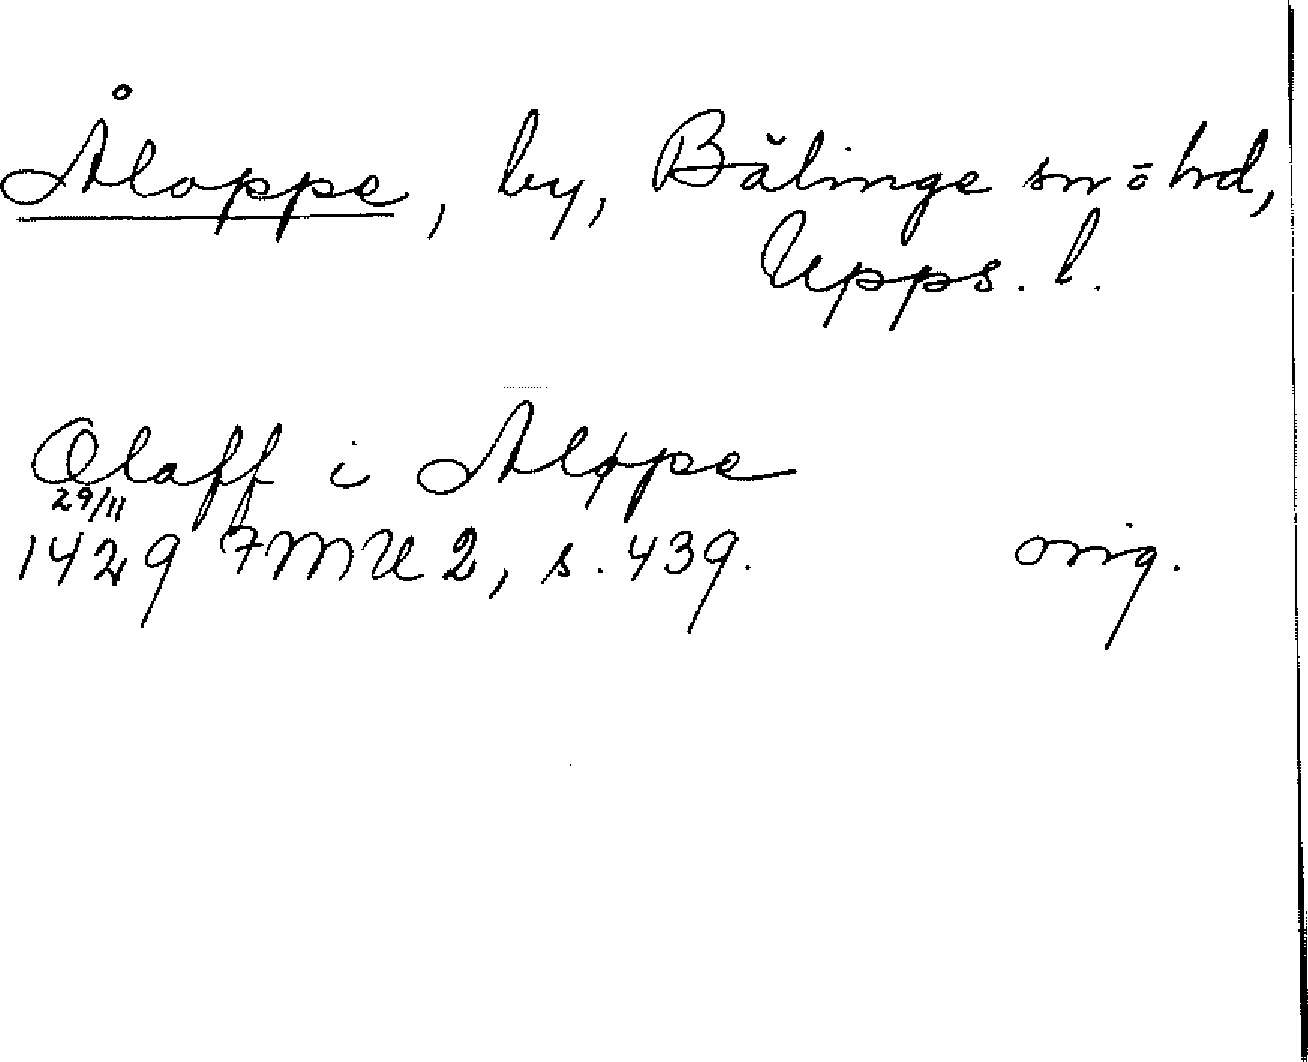 Åloppe, by, Bälinge sn o hd,
Upps. l.
Olaff i Aløpe
29/11
1429 FMU 2, s. 439. orig.